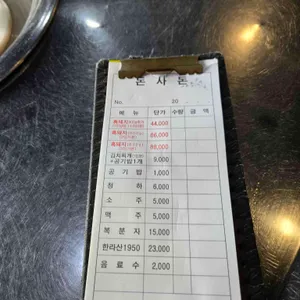 돈사돈
No. 20
메뉴 단가 수량 금액
흑돼지 44,000
흑돼지 66,000
흑돼지 88,000
김치찌개 9,000
+공기밥1개
공기밥 1,000
청하 6,000
소주 5,000
맥주 5,000
복분자 15,000
한라산1950 23,000
음료수 2,000